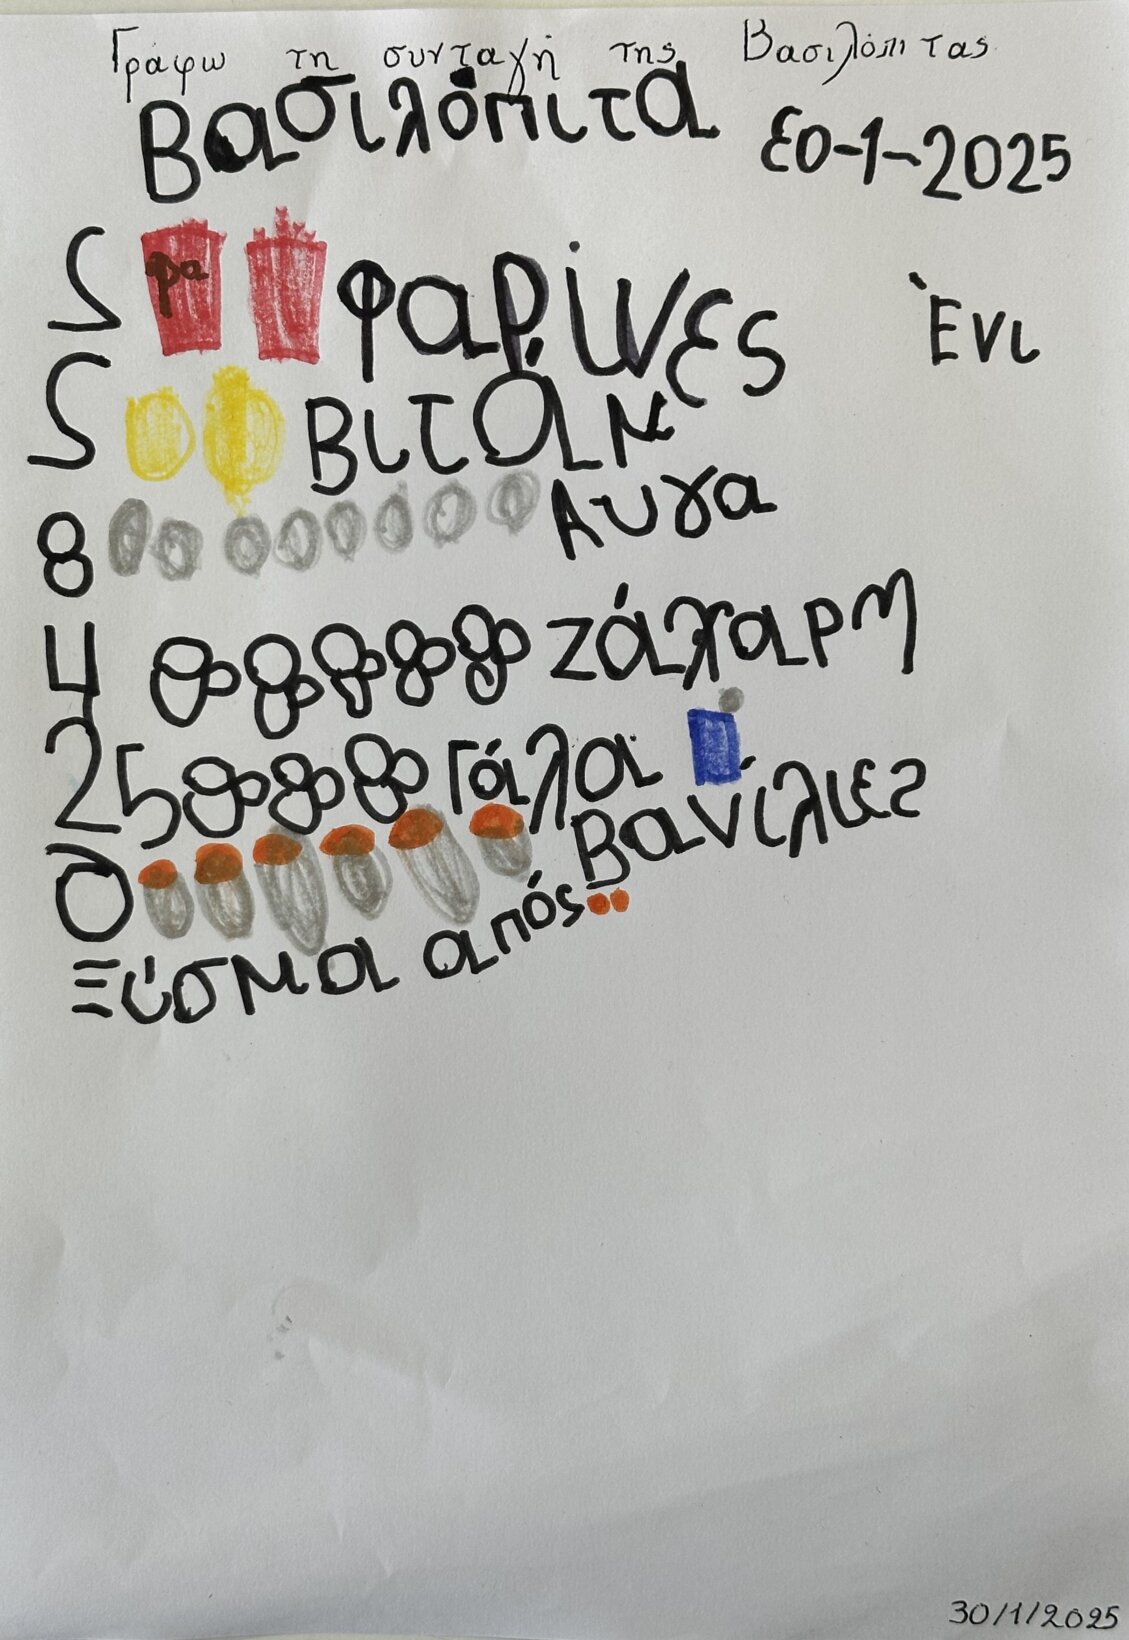 Γράφω τη συνταγή της Βασιλόπιτας
Βασιλόπιτα
30-1-2025
2 φα φαρίνες
Ένι
2 Βιτάμ
8 Αυγα
4 ζάχαρη
25 Γάλα
6 Βανίλιες
Ξύσμα από
30/1/2025